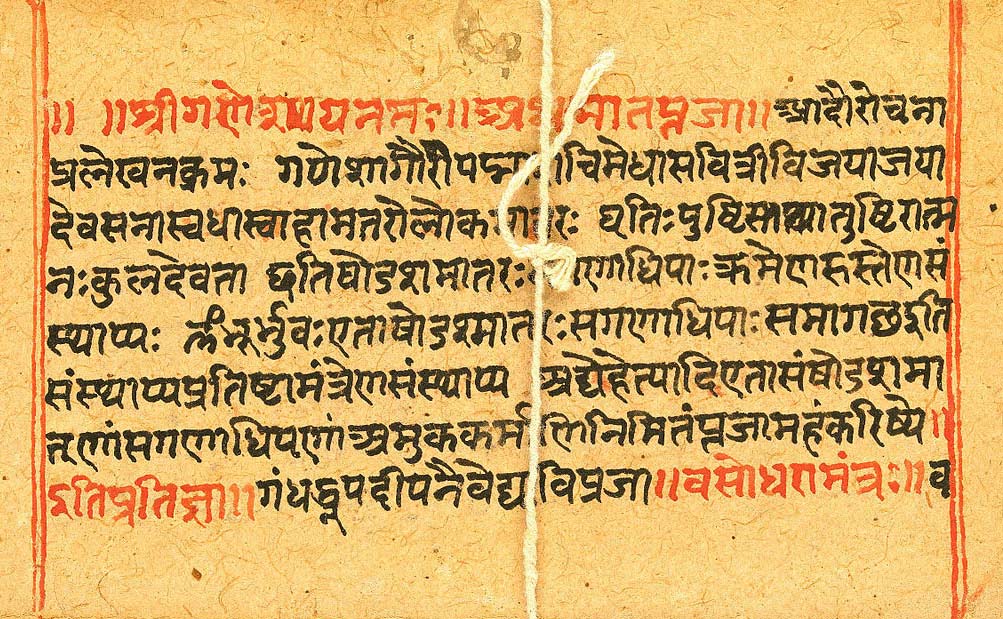 ॥ ॥श्रीगणेशायनमः॥अथमातपूजा॥आदौरोचना
प्रलेखनक्रमः गणेशागौरीपद्माशचिमेधासवित्रीविजयाजया
देवसनास्वधास्वाहामतरोलोकमातरः धृतिःपुष्टिसाथातुष्टिरात्म
नःकुलदेवता इतिषोडशमातरः गणाधिपाःक्रमेणहस्तेणसं
स्थाप्यः ॐभूर्भुवःएताषोडशमातरःसगणाधिपाःसमागछइति
संस्थाप्यप्रतिष्टामंत्रैणसंस्थाप्य अद्येहेत्यादिएतासंषोडशमा
तृणांसगणाधिपणांअमुककर्माणिनिमितंपूजामहंकरिष्ये॥
इतिप्रतिज्ञा॥गंधधूपदीपनैवेद्याविपूजा॥वसोधरामंत्रः॥व